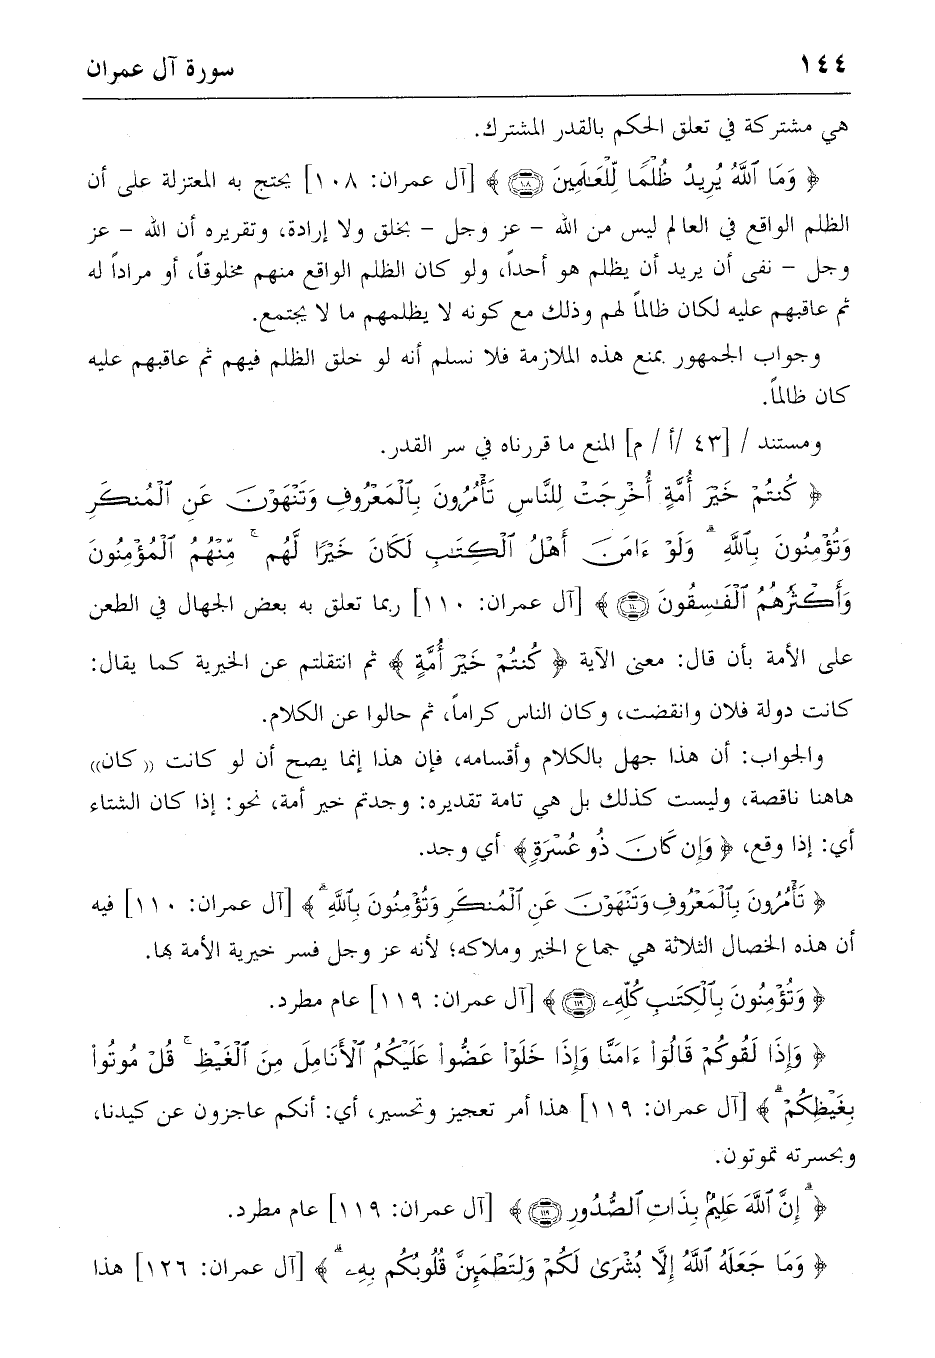 ١٤٤ سورة آل عمران
هي مشتركة في تعلق الحكم بالقدر المشترك.
﴿ وَمَا ٱللَّهُ يُرِيدُ ظُلْمًا لِّلْعَـٰلَمِينَ ﴿١٠٨﴾ ﴾ [آل عمران: ١٠٨] يحتج به المعتزلة على أن
الظلم الواقع في العالم ليس من الله – عز وجل – بخلق ولا إرادة، وتقريره أن الله – عز
وجل – نفى أن يريد أن يظلم هو أحداً، ولو كان الظلم الواقع منهم مخلوقاً، أو مراداً له
ثم عاقبهم عليه لكان ظالماً لهم وذلك مع كونه لا يظلمهم ما لا يجتمع.
وجواب الجمهور بمنع هذه الملازمة فلا نسلم أنه لو خلق الظلم فيهم ثم عاقبهم عليه
كان ظالماً.
ومستند / [٤٣ /أ / م] المنع ما قررناه في سر القدر.
﴿ كُنتُمْ خَيْرَ أُمَّةٍ أُخْرِجَتْ لِلنَّاسِ تَأْمُرُونَ بِٱلْمَعْرُوفِ وَتَنْهَوْنَ عَنِ ٱلْمُنكَرِ
وَتُؤْمِنُونَ بِٱللَّهِ ۗ وَلَوْ ءَامَنَ أَهْلُ ٱلْكِتَـٰبِ لَكَانَ خَيْرًا لَّهُم ۚ مِّنْهُمُ ٱلْمُؤْمِنُونَ
وَأَكْثَرُهُمُ ٱلْفَـٰسِقُونَ ﴿١١٠﴾ ﴾ [آل عمران: ١١٠] ربما تعلق به بعض الجهال في الطعن
على الأمة بأن قال: معنى الآية ﴿ كُنتُمْ خَيْرَ أُمَّةٍ ﴾ ثم انتقلتم عن الخيرية كما يقال:
كانت دولة فلان وانقضت، وكان الناس كراماً، ثم حالوا عن الكلام.
والجواب: أن هذا جهل بالكلام وأقسامه، فإن هذا إنما يصح أن لو كانت (( كان))
هاهنا ناقصة، وليست كذلك بل هي تامة تقديره: وجدتم خير أمة، نحو: إذا كان الشتاء
أي: إذا وقع، ﴿ وَإِن كَانَ ذُو عُسْرَةٍ ﴾ أي وجد.
﴿ تَأْمُرُونَ بِٱلْمَعْرُوفِ وَتَنْهَوْنَ عَنِ ٱلْمُنكَرِ وَتُؤْمِنُونَ بِٱللَّهِ ۗ ﴾ [آل عمران: ١١٠] فيه
أن هذه الخصال الثلاثة هي جماع الخير وملاكه؛ لأنه عز وجل فسر خيرية الأمة بها.
﴿ وَتُؤْمِنُونَ بِٱلْكِتَـٰبِ كُلِّهِۦ ﴿١١٩﴾ ﴾ [آل عمران: ١١٩] عام مطرد.
﴿ وَإِذَا لَقُوكُمْ قَالُوٓاْ ءَامَنَّا وَإِذَا خَلَوْاْ عَضُّواْ عَلَيْكُمُ ٱلْأَنَامِلَ مِنَ ٱلْغَيْظِ ۚ قُلْ مُوتُواْ
بِغَيْظِكُمْ ۗ ﴾ [آل عمران: ١١٩] هذا أمر تعجيز وتحسير، أي: أنكم عاجزون عن كيدنا،
وبحسرته تموتون.
﴿ ۗ إِنَّ ٱللَّهَ عَلِيمٌۢ بِذَاتِ ٱلصُّدُورِ ﴿١١٩﴾ ﴾ [آل عمران: ١١٩] عام مطرد.
﴿ وَمَا جَعَلَهُ ٱللَّهُ إِلَّا بُشْرَىٰ لَكُمْ وَلِتَطْمَئِنَّ قُلُوبُكُم بِهِۦ ۗ ﴾ [آل عمران: ١٢٦] هذا